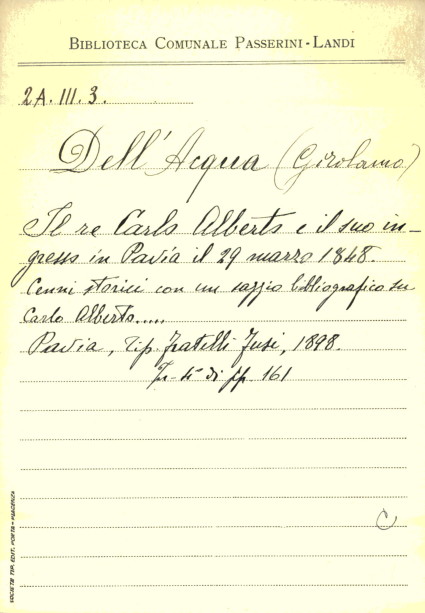 BIBLIOTECA COMUNALE PASSERINI-LANDI
2A.III.3.
Dell'Acqua (Girolamo)
Il re Carlo Alberto e il suo in-
gresso in Pavia il 29 marzo 1848.
Cenni storici con un saggio bibliografico su
Carlo Alberto.....
Pavia, Tip. Fratelli Fusi, 1898.
In-4° di pp. 161
C
SOCIETÀ TIP. EDIT. PORTA - PIACENZA